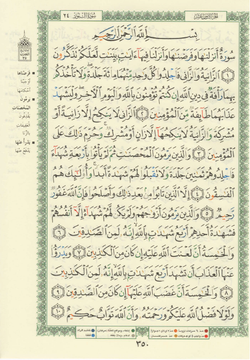 سُورَةُ النُّورِ
٢٤
بِسْمِ اللَّهِ الرَّحْمَٰنِ الرَّحِيمِ
سُورَةٌ أَنزَلْنَاهَا وَفَرَضْنَاهَا وَأَنزَلْنَا فِيهَا آيَاتٍ بَيِّنَاتٍ لَّعَلَّكُمْ تَذَكَّرُونَ
١ الزَّانِيَةُ وَالزَّانِي فَاجْلِدُوا كُلَّ وَاحِدٍ مِّنْهُمَا مِائَةَ جَلْدَةٍ وَلَا تَأْخُذْكُم
بِهِمَا رَأْفَةٌ فِي دِينِ اللَّهِ إِن كُنتُمْ تُؤْمِنُونَ بِاللَّهِ وَالْيَوْمِ الْآخِرِ وَلْيَشْهَدْ
عَذَابَهُمَا طَائِفَةٌ مِّنَ الْمُؤْمِنِينَ ٢ الزَّانِي لَا يَنكِحُ إِلَّا زَانِيَةً أَوْ
مُشْرِكَةً وَالزَّانِيَةُ لَا يَنكِحُهَا إِلَّا زَانٍ أَوْ مُشْرِكٌ وَحُرِّمَ ذَٰلِكَ عَلَى
الْمُؤْمِنِينَ ٣ وَالَّذِينَ يَرْمُونَ الْمُحْصَنَاتِ ثُمَّ لَمْ يَأْتُوا بِأَرْبَعَةِ شُهَدَاءَ
فَاجْلِدُوهُمْ ثَمَانِينَ جَلْدَةً وَلَا تَقْبَلُوا لَهُمْ شَهَادَةً أَبَدًا وَأُولَٰئِكَ هُمُ
الْفَاسِقُونَ ٤ إِلَّا الَّذِينَ تَابُوا مِن بَعْدِ ذَٰلِكَ وَأَصْلَحُوا فَإِنَّ اللَّهَ غَفُورٌ
رَّحِيمٌ ٥ وَالَّذِينَ يَرْمُونَ أَزْوَاجَهُمْ وَلَمْ يَكُن لَّهُمْ شُهَدَاءُ إِلَّا أَنفُسُهُمْ
فَشَهَادَةُ أَحَدِهِمْ أَرْبَعُ شَهَادَاتٍ بِاللَّهِ إِنَّهُ لَمِنَ الصَّادِقِينَ ٦
وَالْخَامِسَةُ أَنَّ لَعْنَتَ اللَّهِ عَلَيْهِ إِن كَانَ مِنَ الْكَاذِبِينَ ٧ وَيَدْرَأُ
عَنْهَا الْعَذَابَ أَن تَشْهَدَ أَرْبَعَ شَهَادَاتٍ بِاللَّهِ إِنَّهُ لَمِنَ الْكَاذِبِينَ
٨ وَالْخَامِسَةَ أَنَّ غَضَبَ اللَّهِ عَلَيْهَا إِن كَانَ مِنَ الصَّادِقِينَ
٩ وَلَوْلَا فَضْلُ اللَّهِ عَلَيْكُمْ وَرَحْمَتُهُ وَأَنَّ اللَّهَ تَوَّابٌ حَكِيمٌ ١٠
٣٥٠